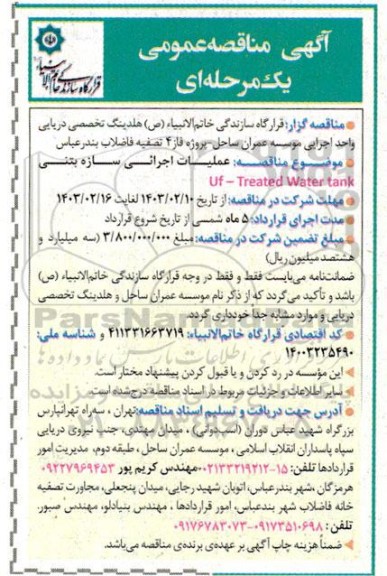 آگهی مناقصه عمومی
یک مرحله‌ای
قرارگاه سازندگی خاتم الانبیاء
● مناقصه گزار: قرارگاه سازندگی خاتم‌الانبیاء (ص) هلدینگ تخصصی دریایی
واحد اجرایی موسسه عمران ساحل- پروژه فاز ۴ تصفیه فاضلاب بندرعباس
● موضوع مناقصه: عملیات اجرائی سازه بتنی
Uf – Treated Water tank
● مهلت شرکت در مناقصه: از تاریخ ۱۴۰۳/۰۲/۱۰ لغایت ۱۴۰۳/۰۲/۱۶
● مدت اجرای قرارداد: ۵ ماه شمسی از تاریخ شروع قرارداد
● مبلغ تضمین شرکت در مناقصه: مبلغ ۳/۸۰۰/۰۰۰/۰۰۰ (سه میلیارد و
هشتصد میلیون ریال)
ضمانت‌نامه می‌بایست فقط و فقط در وجه قرارگاه سازندگی خاتم‌الانبیاء (ص)
باشد و تأکید می‌گردد که از ذکر نام موسسه عمران ساحل و هلدینگ تخصصی
دریایی و موارد مشابه جدا خودداری گردد.
● کد اقتصادی قرارگاه خاتم‌الانبیاء: ۴۱۱۳۳۱۶۶۳۷۱۹ و شناسه ملی:
۱۴۰۰۳۲۳۵۴۹۰
● این مؤسسه در رد کردن و یا قبول کردن پیشنهاد مختار است.
● سایر اطلاعات و جزئیات مربوط در اسناد مناقصه درج شده است.
● آدرس جهت دریافت و تسلیم اسناد مناقصه: تهران ، سه‌راه تهرانپارس
بزرگراه شهید عباس دوران (استخر) ، میدان مهتدی، جنب نیروی دریایی
سپاه پاسداران انقلاب اسلامی ، موسسه عمران ساحل ، طبقه دوم، مدیریت امور
قراردادها تلفن: ۱۵-۰۲۱۳۳۲۱۹۲۱۲-مهندس کریم پور ۰۹۲۲۷۹۶۹۴۵۳
هرمزگان ،شهر بندرعباس، اتوبان شهید رجایی، میدان پنجعلی، مجاورت تصفیه
خانه فاضلاب شهر بندرعباس، امور قراردادها ، مهندس بنیادلو، مهندس صبور.
تلفن: ۰۹۱۷۳۵۱۰۶۹۸-۰۹۱۷۶۷۸۳۰۷۳
● ضمناً هزینه چاپ آگهی بر عهده‌ی برنده‌ی مناقصه می‌باشد.